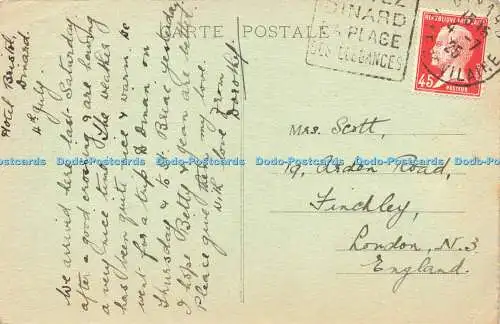 CARTE POSTALE
DINARD
LA PLAGE
DES ELEGANCES
REPUBLIQUE FRANÇAISE
45
PASTEUR
4 -7
25
VILAINE
Hotel Bristol,
Dinard.
4th July.
We arrived here last Saturday
after a good crossing & are having
a very nice time. The weather
has been quite nice & warm. We
went for a trip to Dinan on
Thursday & to St. Briac yesterday
I hope Betty & Jean are well.
Please give them my love.
With love from
Dorothy.
Mrs. Scott,
19, Arden Road,
Finchley,
London, N.3
England.
Postcards
Postcards
Postcards